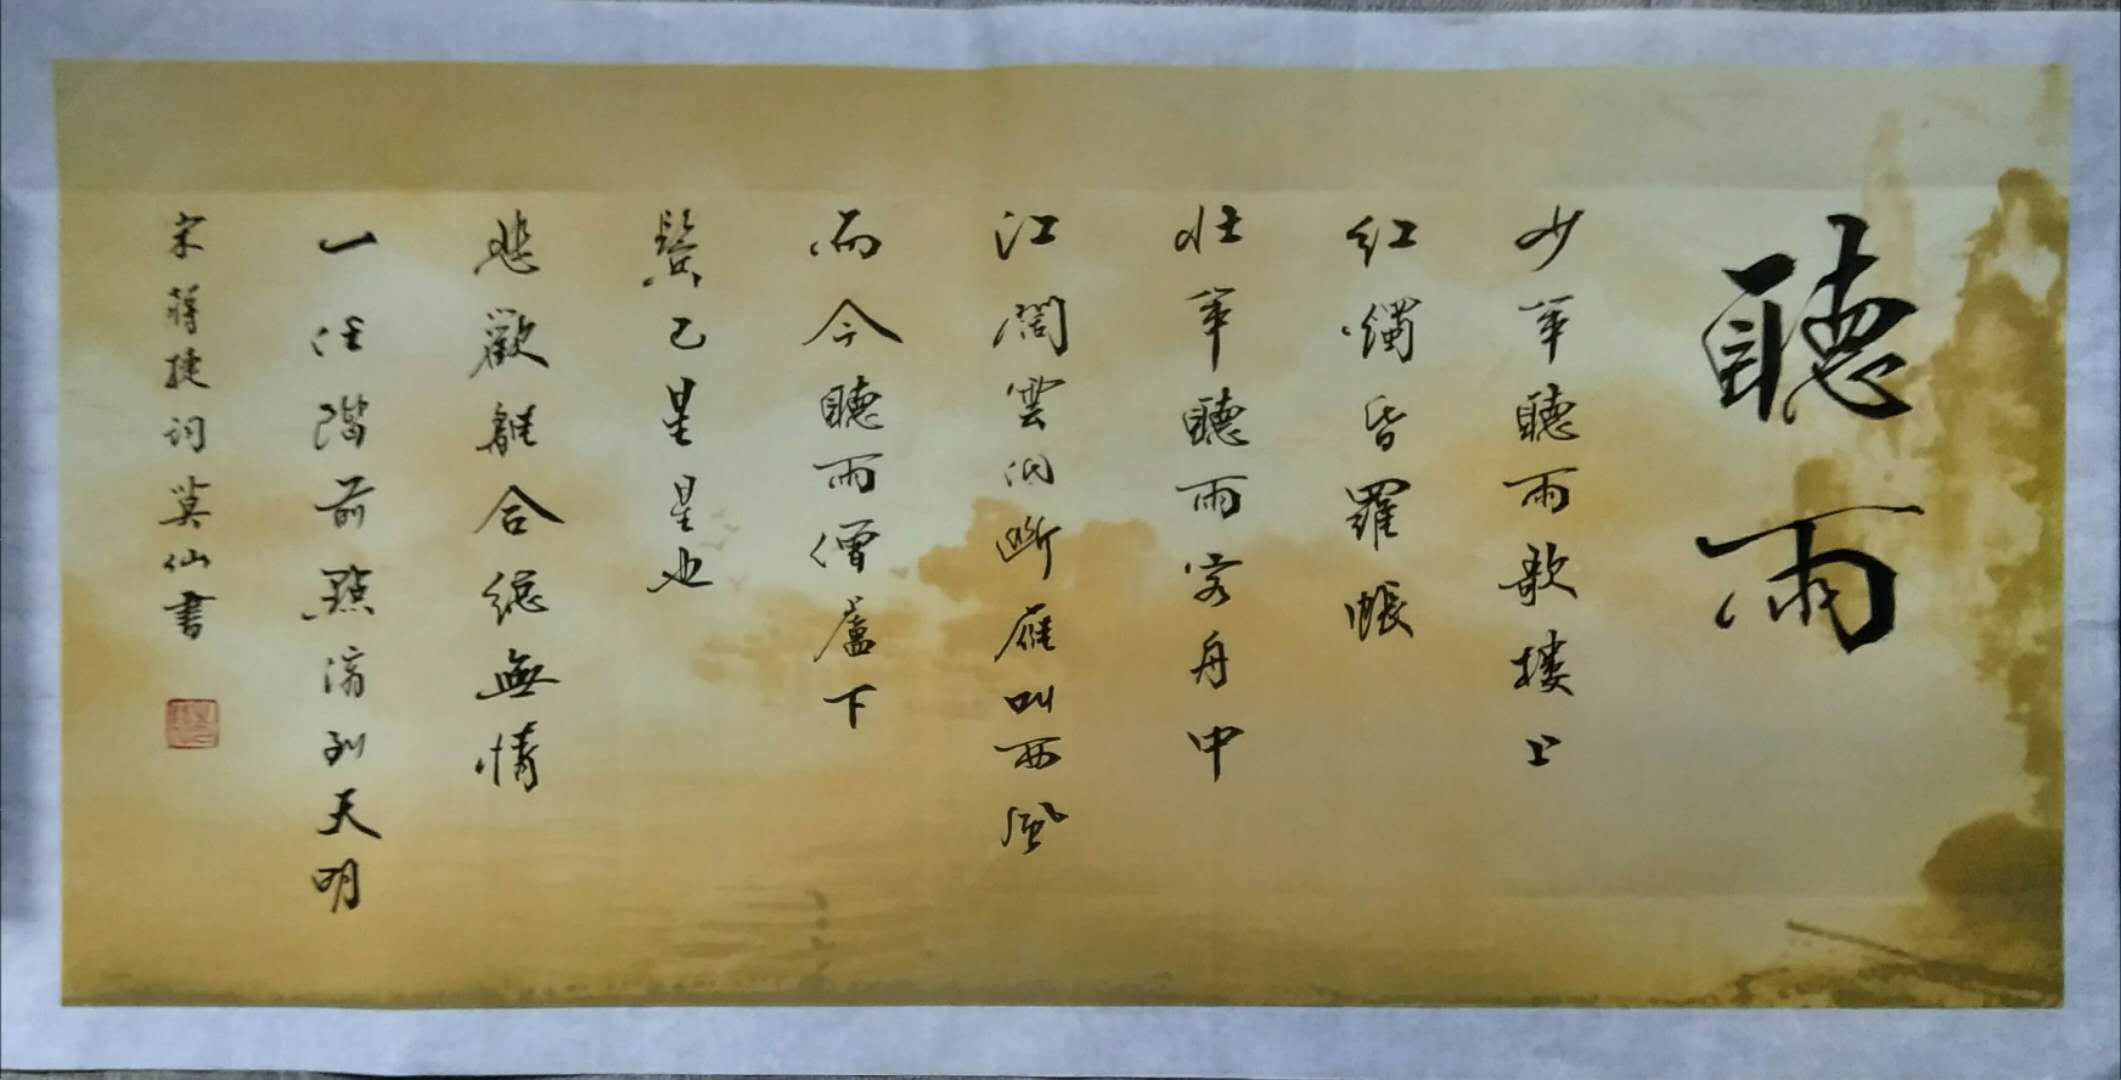 聽雨
少年聽雨歌樓上
紅燭昏羅帳
壯年聽雨客舟中
江闊雲低斷雁叫西風
而今聽雨僧廬下
鬢已星星也
悲歡離合總無情
一任階前點滴到天明
宋蔣捷詞莫仙書